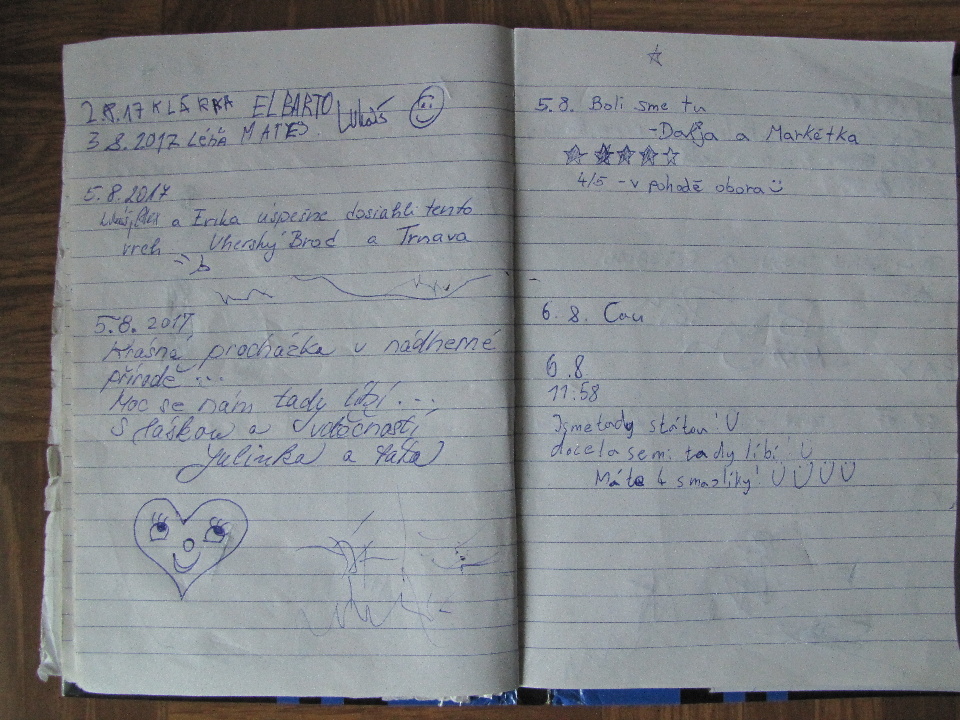 2.8.17 KLÁRKA ELBARTO Lukáš
3.8.2017 MATES
5.8.2017
a Erika úspešne dosiahli tento
vrch Uherský Brod a Trnava
5.8.2017
Krásná procházka v nádherné
přírodě...
Moc se nám tady líbí...
S láskou a vděčností
Julinka a táta
5.8. Boli sme tu
- a Markétka
4/5 - v pohodě obora
6.8. Cau
6.8
11:58
Jsme tady s tátou!
docela se mi tady líbí!
Máte 4 smazlíky!